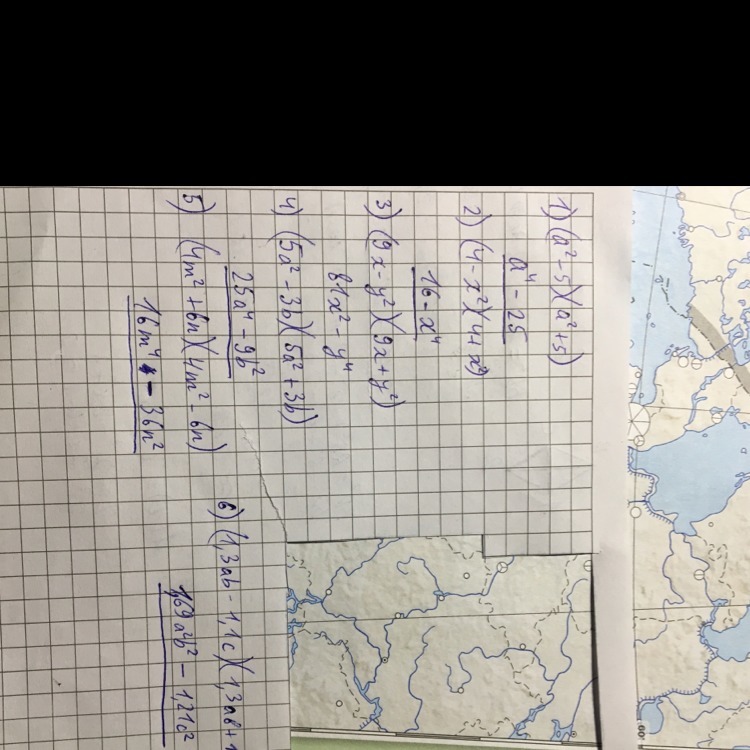 1) (a² - 5)(a² + 5)
a⁴ - 25
2) (4 - x²)(4 + x²)
16 - x⁴
3) (9x - y²)(9x + y²)
81x² - y⁴
4) (5a² - 3b)(5a² + 3b)
25a⁴ - 9b²
5) (4m² + 6n)(4m² - 6n)
16m⁴ - 36n²
6) (1,3ab - 1,1c)(1,3ab + 1
1,69a²b² - 1,21c²